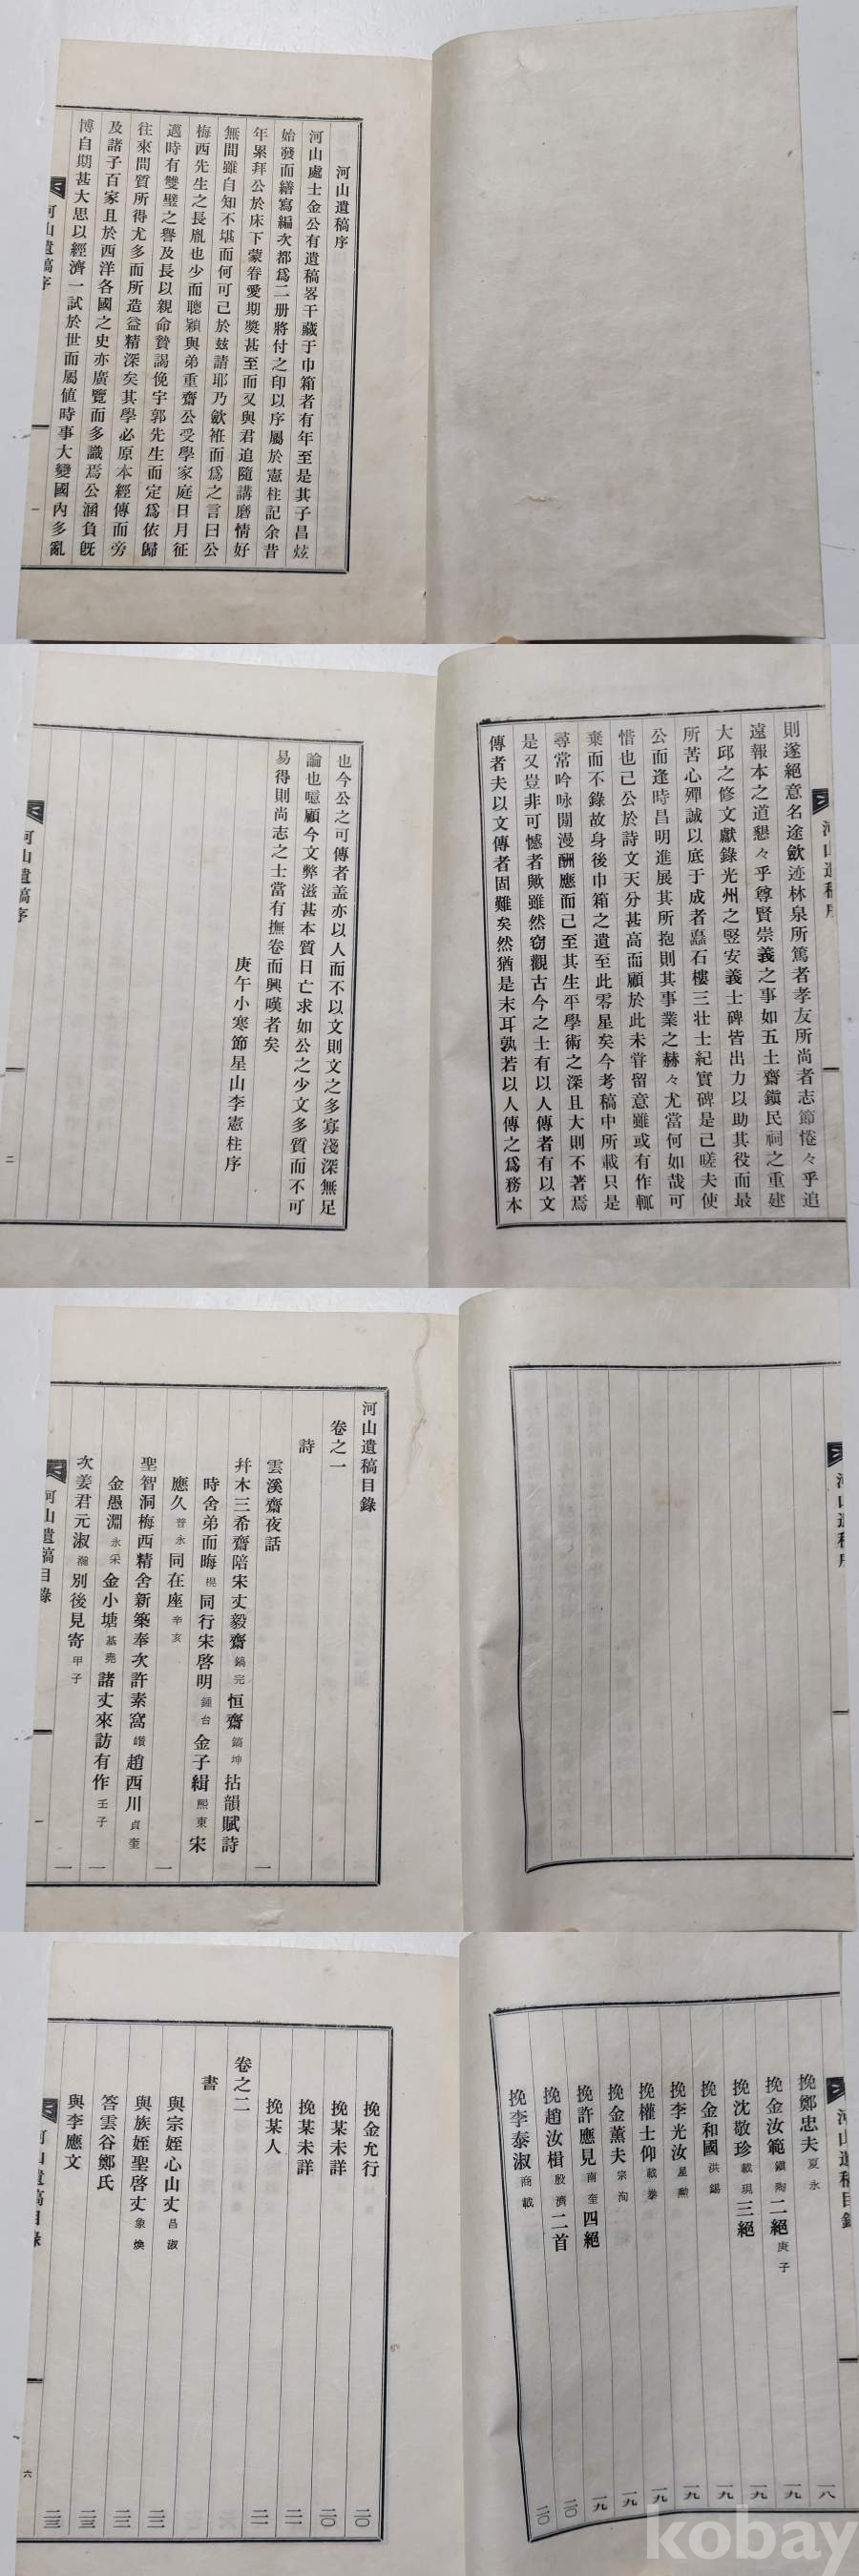 河山遺稿序
河山處士金公有遺稿畧干藏于巾箱者有年至是其子昌炫
始發而繕寫編次都爲二册將付之印以序屬於憲柱記余昔
年累拜公於床下蒙眷愛期奬甚至而又與君追隨講磨情好
無間雖自知不堪而何可已於玆請耶乃斂袵而爲之言曰公
梅西先生之長胤也少而聰穎與弟重齋公受學家庭日月征
邁時有雙璧之譽及長以親命贄謁俛宇郭先生而定爲依歸
往來問質所得尤多而所造益精深矣其學必原本經傳而旁
及諸子百家且於西洋各國之史亦廣覽而多識焉公涵負旣
博自期甚大思以經濟一試於世而屬値時事大變國內多亂
河山遺稿序
一
則遂絕意名途斂迹林泉所篤者孝友所尚者志節惓々乎追
遠報本之道懇々乎尊賢崇義之事如五土齋鎭民祠之重建
大邱之修文獻錄光州之竪安義士碑皆出力以助其役而最
所苦心殫誠以底于成者矗石樓三壮士紀實碑是已嗟夫使
公而逢時昌明進展其所抱則其事業之赫々尤當何如哉可
惜也已公於詩文天分甚高而顧於此未甞留意雖或有作輒
棄而不錄故身後巾箱之遺至此零星矣今考稿中所載只是
尋常吟咏閒漫酬應而已至其生平學術之深且大則不著焉
是又豈非可憾者歟雖然窃觀古今之士有以人傳者有以文
傳者夫以文傳者固難矣然猶是末耳孰若以人傳之爲務本
河山遺稿序
也今公之可傳者盖亦以人而不以文則文之多寡淺深無足
論也噫顧今文弊滋甚本質日亡求如公之少文多質而不可
易得則尚志之士當有撫卷而興嘆者矣
庚午小寒節星山李憲柱序
河山遺稿序
二
河山遺稿序
河山遺稿目錄
卷之一
詩
雲溪齋夜話 一
幷木三希齋陪宋丈毅齋鎬完恒齋鎬坤拈韻賦詩
時舍弟而晦榥同行宋啓明鍾台金子緝熙東宋
應久普永同在座辛亥 一
聖智洞梅西精舍新築奉次許素窩巑趙西川貞奎
金愚淵永采金小塘基堯諸丈來訪有作壬子 一
次姜君元淑瀚別後見寄甲子 一
河山遺稿目錄
一
挽鄭忠夫夏永 一八
挽金汝範鎭陶二絕庚子 一九
挽沈敬珍載現三絕 一九
挽金和國洪錫 一九
挽李光汝星勲 一九
挽權士仰載泰 一九
挽金薰夫宗洵 一九
挽許應見南奎四絕 一九
挽趙汝楫殷濟二首 二〇
挽李泰淑商載 二〇
河山遺稿目錄
挽金允行 二〇
挽某未詳 二〇
挽某未詳 二一
挽某人 二一
卷之二
書
與宗姪心山丈昌淑 二二
與族姪聖啓丈象煥 二二
答雲谷鄭氏 二三
與李應文 二三
河山遺稿目錄
六
kobay